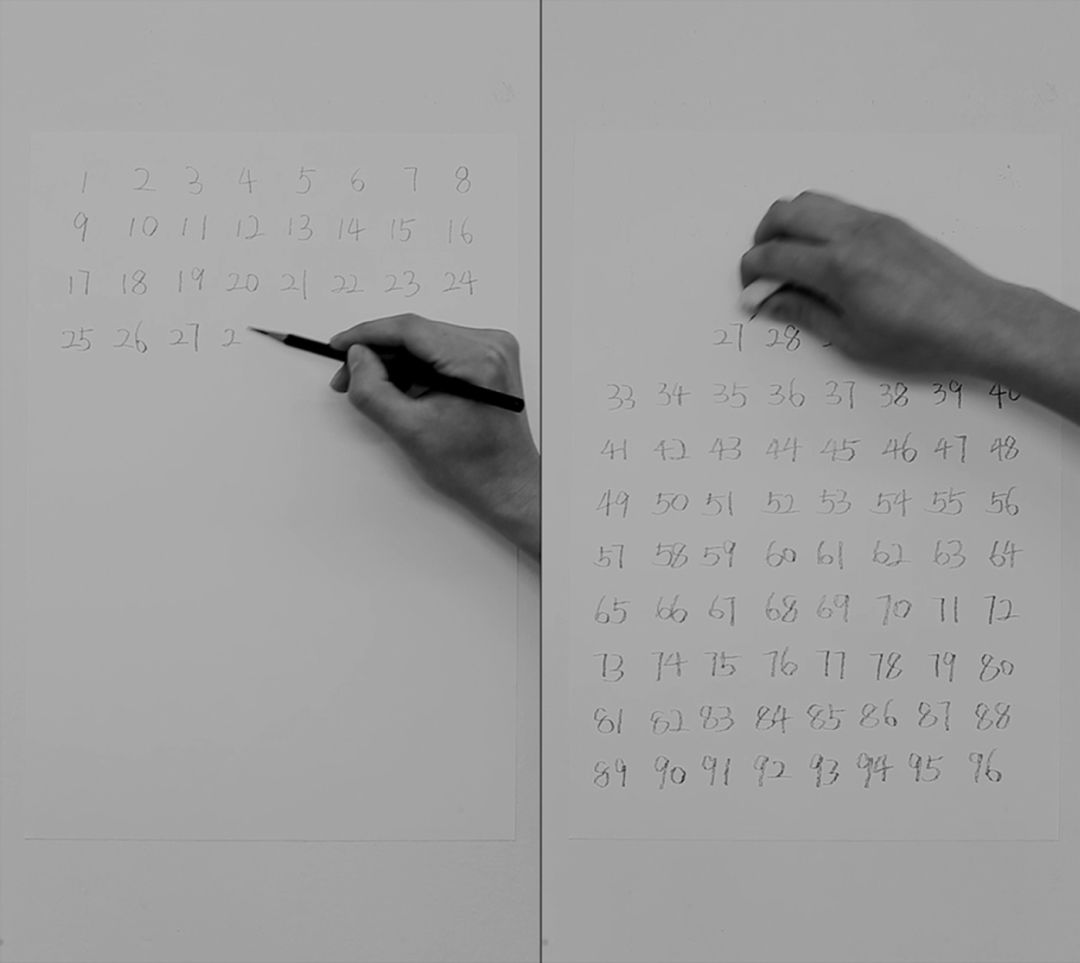 1 2 3 4 5 6 7 8
9 10 11 12 13 14 15 16
17 18 19 20 21 22 23 24
25 26 27 2
27 28
33 34 35 36 37 38 39 40
41 42 43 44 45 46 47 48
49 50 51 52 53 54 55 56
57 58 59 60 61 62 63 64
65 66 67 68 69 70 71 72
73 74 75 76 77 78 79 80
81 82 83 84 85 86 87 88
89 90 91 92 93 94 95 96